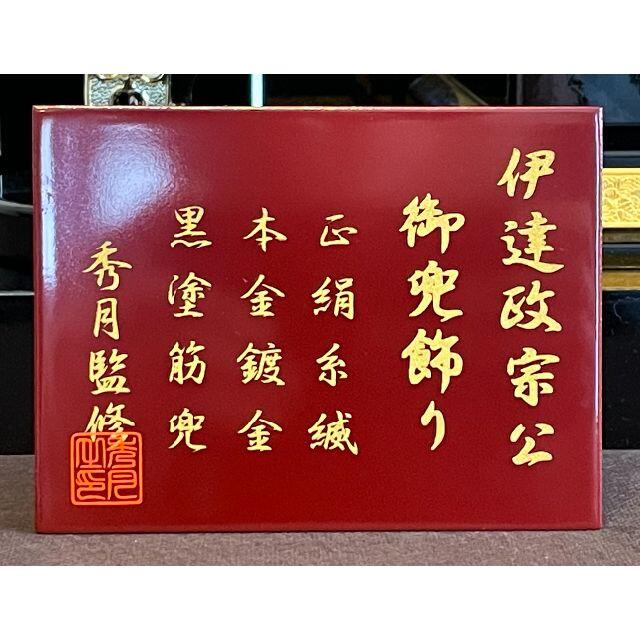 伊達政宗公
御兜飾り
正絹糸縅
本金鍍金
黒塗筋兜
秀月監修
秀月之印